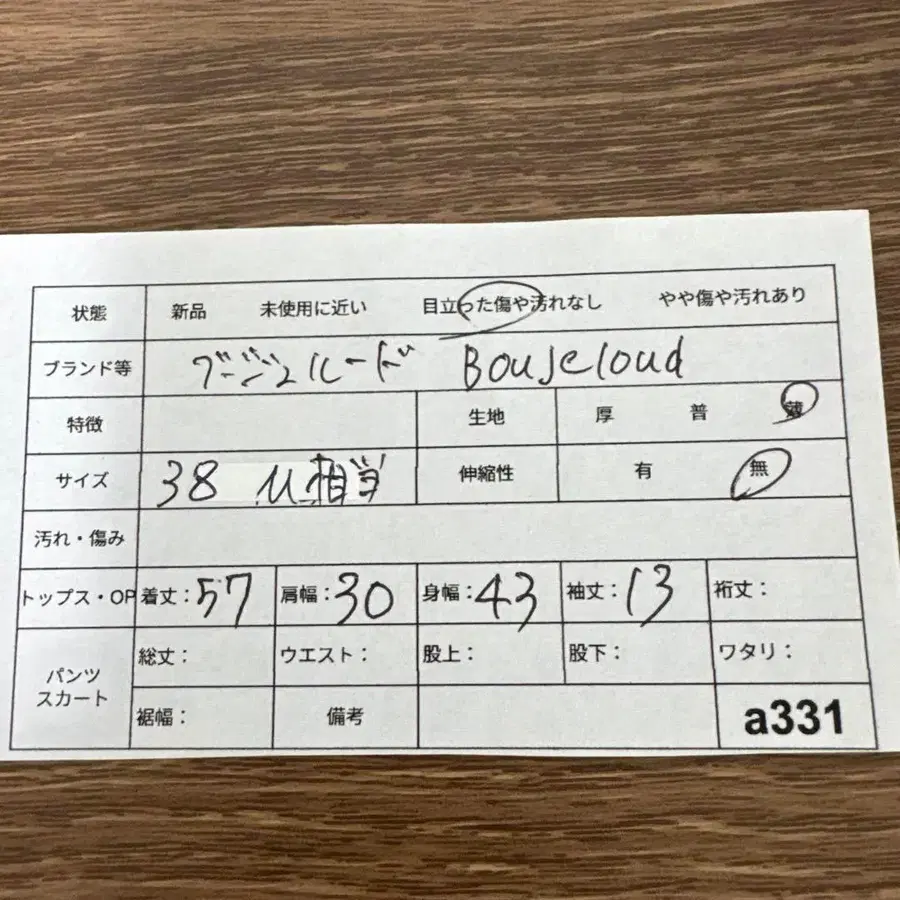 状態 新品 未使用に近い 目立った傷や汚れなし やや傷や汚れあり
ブランド等 ブージュルード Boujeloud
特徴 生地 厚 普 薄
サイズ 38 M相当 伸縮性 有 無
汚れ・傷み
トップス・OP 着丈：57 肩幅：30 身幅：43 袖丈：13 裄丈：
パンツ スカート 総丈： ウエスト： 股上： 股下： ワタリ：
裾幅： 備考 a331